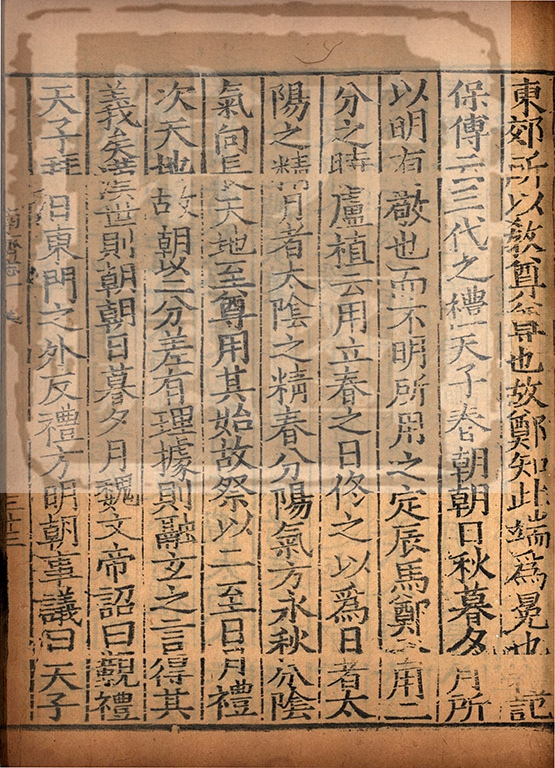 東郊所以敎尊尊也故鄭知此端為冕也禮記
保傅云三代之禮天子春朝朝日秋暮夕月所
以明有敬也而不明所用之定辰馬鄭云用二
分之時盧植云用立春之日佟之以為日者太
陽之精月者太陰之精春分陽氣方永秋分陰
氣向長天地至尊用其始故祭以二至日月禮
次天地故朝以二分差有理據則融玄之言得其
義矣漢世則朝朝日暮夕月魏文帝詔曰覲禮
天子拜日東門之外反禮方明朝事議曰天子